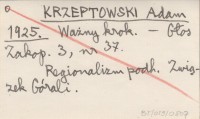 KRZEPTOWSKI Adam
1925. Ważny krok. – Głos
Zakop. 3, nr 37.
Regionalizm podh. Zwią-
zek Górali.